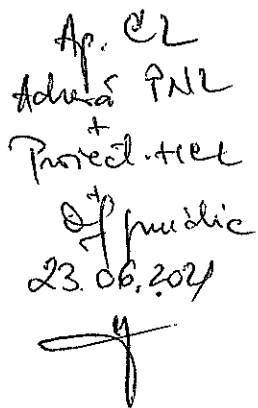 Ap. CL
Adresă PNL
+
Proiect HCL
+
Of juridic
23.06.2021